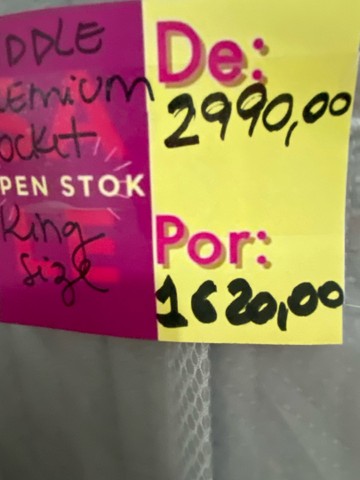 DDLE
emium
ocket
PEN STOK
King
size
De:
2990,00
Por:
1620,00